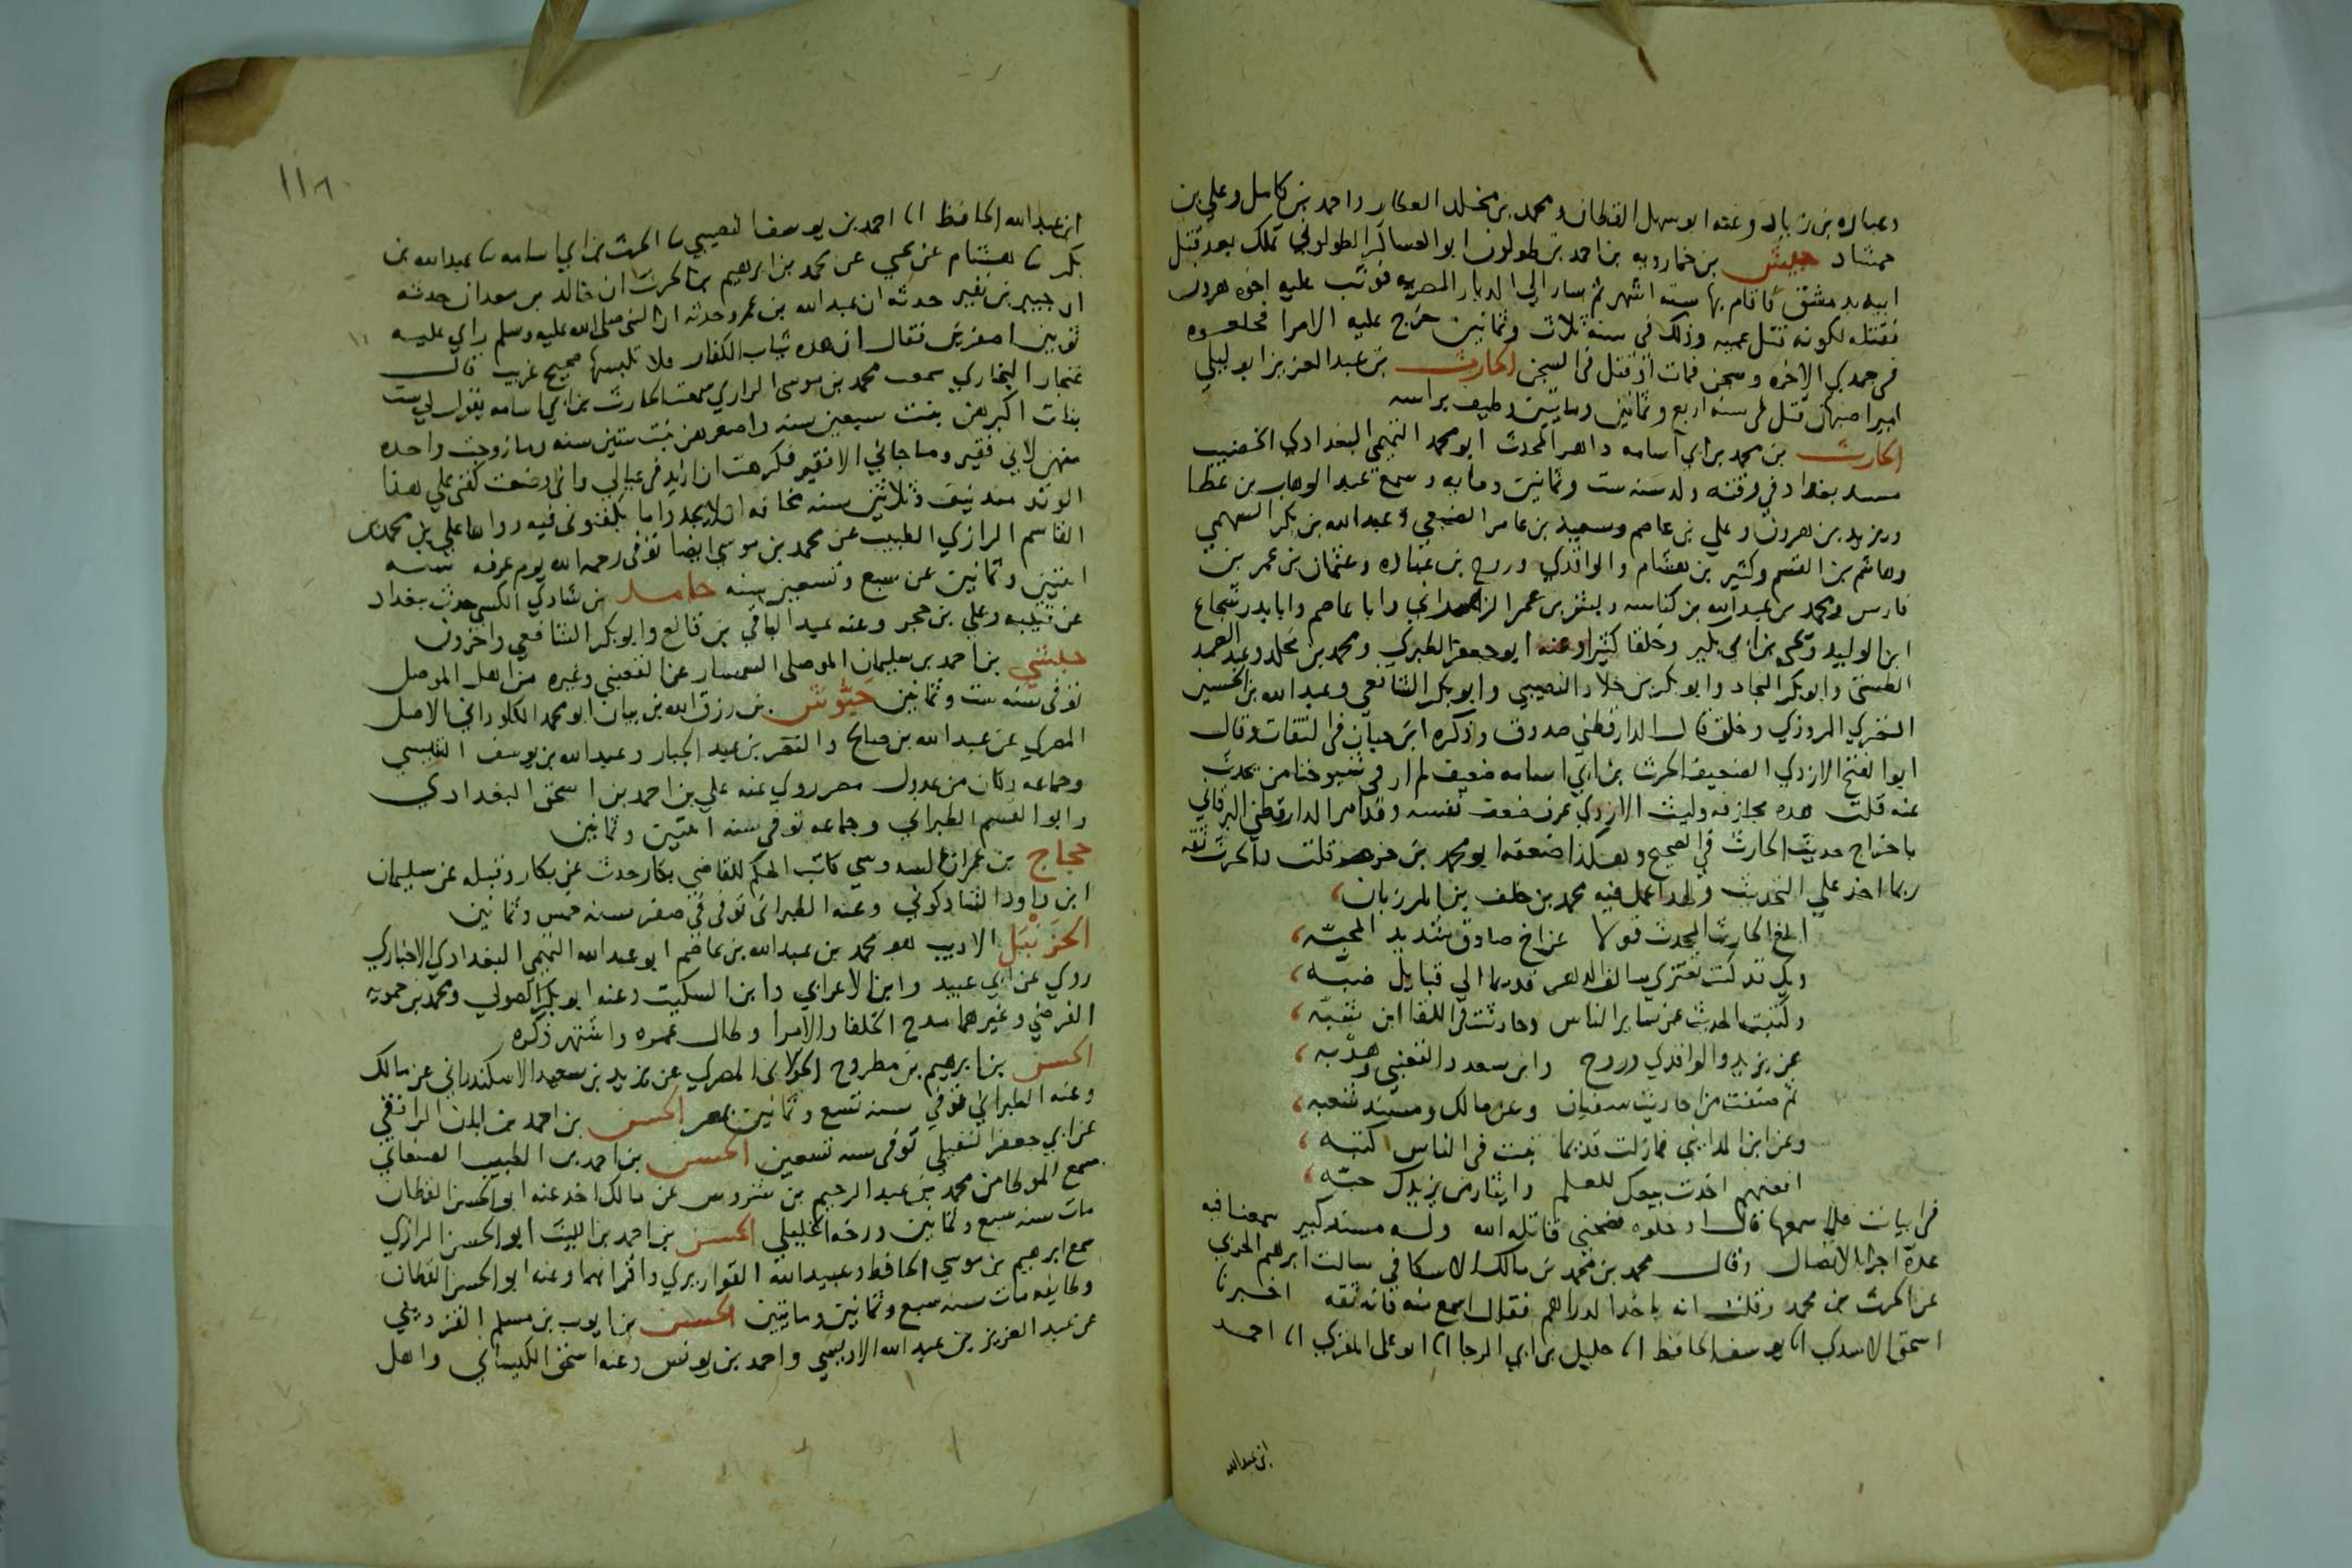 وعباده بن زياد وعنه ابو سهل القطان ومحمد بن مخلد العطار واحمد بن كامل وعلي بن
حمشاد جيش بن خمارويه بن احمد بن طولون ابو العساكر الطولوني تملك بعد قتل
ابيه بدمشق فاقام بها ستة اشهر ثم سار الي الديار المصريه فوثب عليه اخوه هرون
فقتله لكونه قتل عميه وذلك في سنة ثلاث وثمانين خرج عليه الامرا فخلعوه
في جمدي الاخره وسجن فمات او قتل في السجن الحارث بن عبد العزيز ابو ليلي
امير اصبهان قتل في سنة اربع وثمانين ومايتين وطيف براسه
الحارث بن محمد بن ابي اسامه داهر المحدث ابو محمد التميمي البغدادي الخصيب
مسند بغداد في وقته ولد سنه ست وثمانين ومايه وسمع عبد الوهاب بن عطا
ويزيد بن هرون وعلي بن عاصم وسعيد بن عامر الضبعي وعبد الله بن بكر السهمي
وهاشم بن القسم وكثير بن هشام والواقدي وروح بن عباده وعثمان بن عمر بن
فارس ومحمد بن عبد الله بن كناسه وبشر بن عمر الزهراني وابا عاصم وابا بدر شجاع
ابن الوليد ويحيى بن ابي بكير وخلقا كثيرا وعنه ابو جعفر الطبري ومحمد بن مخلد وعبد الصمد
الطستي وابو بكر النجاد وابو بكر بن خلاد النصيبي وابو بكر الشافعي وعبد الله بن الحسين
النضري المروزي وخلق قال الدارقطني صدوق وذكره ابن حبان في الثقات وقال
ابو الفتح الازدي الضعيف الحرث بن ابي اسامه ضعيف لم ار في شيوخنا من يحدث
عنه قلت هده مجازفه وليت الازدي عرف ضعف نفسه وقد امر الدارقطني البرقاني
باخراج حديث الحارث في الصحيح وهكذا ضعفه ابو محمد بن حزم قلت بل الحرث ثقه
ربما اخذ علي التحديث ولهدا عمل فيه محمد بن خلف بن المرزبان،
ابلغ الحارث المحدث قولا عن اخ صادق شديد المحبّه،
ويك قد كنت تعتزي سالف الدهر قديما الي قبايل ضبّه،
وكتبت الحديث عن ساير الناس وحاذيت في اللقا ابن شبّه،
عن يزيد والواقدي وروح وابن سعد والقعنبي وهدبه،
ثم صنفت من احاديث سفيان وعن مالك ومسند شعبه،
وعن ابن المدايني فمازلت قديما تبث في الناس كتبه،
افعنهم اخذت بيعك للعلم وايثار من يزيدك حبّه،
في ابيات فلما سمعها قال ادخلوه فضحني قاتله الله وله مسند كبير سمعنا فيه
عدة اجزا بالاتصال وقال محمد بن محمد بن مالك الاسكافي سالت ابرهيم الحربي
عن الحرث بن محمد وقلت انه ياخذ الدراهم فقال اسمع منه فانه ثقه اخبرنا
اسحق الاسدي انا يوسف الحافظ انا خليل بن ابي الرجا انا ابو علي المقري انا احمد
ابن عبد الله
١١٨
ابن عبد الله الحافظ انا احمد بن يوسف النصيبي نا الحرث بن ابي اسامه نا عبد الله بن
بكر نا هشام عن يحيي عن محمد بن ابرهيم بن الحرث ان خالد بن معدان حدثه
ان جبير بن نفير حدثه ان عبد الله بن عمرو حدثه ان النبي صلى الله عليه وسلم راي عليه
ثوبين اصفرين فقال ان هده ثياب الكفار فلا تلبسها صحيح غريب قال
غنجار البخاري سمعت محمد بن موسى الرازي سمعت الحارث بن ابي اسامه يقول لي ست
بنات اكبرهن بنت سبعين سنه واصغرهن بنت ستين سنه وما زوجت واحده
منهن لاني فقير وما جاني الا فقير فكرهت ان ازيد في عيالي واني وضعت كفني على هذا
الوتد منذ نيف وثلاثين سنه مخافه ان لا يجدوا ما يكفنوني فيه رواها علي بن محمد بن
القاسم الرازي الطبيب عن محمد بن موسي ايضا توفي رحمه الله يوم عرفه سنه
اثنتين وثمانين عن سبع وتسعين سنه حامد بن شادي الكسي حدث ببغداد
عن قتيبه وعلي بن حجر وعنه عبد الباقي بن قانع وابو بكر الشافعي واخرون
حبشي بن احمد بن سليمان الموصلي السمسار عن القعنبي وغيره من اهل الموصل
توفي سنه ست وثمانين حبّوش بن رزق الله بن بيان ابو محمد الكلوداني الاصل
المصري عن عبد الله بن صالح والنضر بن عبد الجبار وعبد الله بن يوسف التنيسي
وجماعه وكان من عدول مصر روي عنه علي بن احمد بن اسحق البغدادي
وابو القسم الطبراني وجماعه توفي سنه اثنتين وثمانين
حجاج بن عمران السدوسي كاتب الحكم للقاضي بكار حدث عن بكار وقبله عن سليمان
ابن داود الشاذكوني وعنه الطبراني توفي في صفر سنه خمس وثمانين
الحزنبل الاديب هو محمد بن عبد الله بن عاصم ابو عبد الله التميمي البغدادي الاخباري
روي عن ابي عبيد وابن الاعرابي وابن السكيت وعنه ابو بكر الصولي ومحمد بن حمويه
الفرضي وغيرهما مدح الخلفا والامرا وطال عمره واشتهر ذكره
الحسن بن ابرهيم بن مطروح الخولاني المصري عن يزيد بن سعيد الاسكندراني عن مالك
وعنه الطبراني توفي سنه تسع وثمانين بمصر الحسن بن احمد بن ابان الرافقي
عن ابي جعفر النفيلي توفي سنه تسعين الحسن بن احمد بن الطبيب الصنعاني
سمع الموطا من محمد بن عبد الرحيم بن شروس عن مالك اخد عنه ابو الحسن القطان
مات سنه سبع وثمانين ورخه الخليلي الحسن بن احمد بن الليث ابو الحسن الرازي
سمع ابرهيم بن موسي الحافظ وعبيد الله القواريري واقرانهما وعنه ابو الحسن القطان
وطايفه مات سنه سبع وثمانين ومايتين الحسن بن ايوب بن مسلم القزويني
عن عبد العزيز بن عبد الله الاويسي واحمد بن يونس وعنه اسحق الكيساني واهل